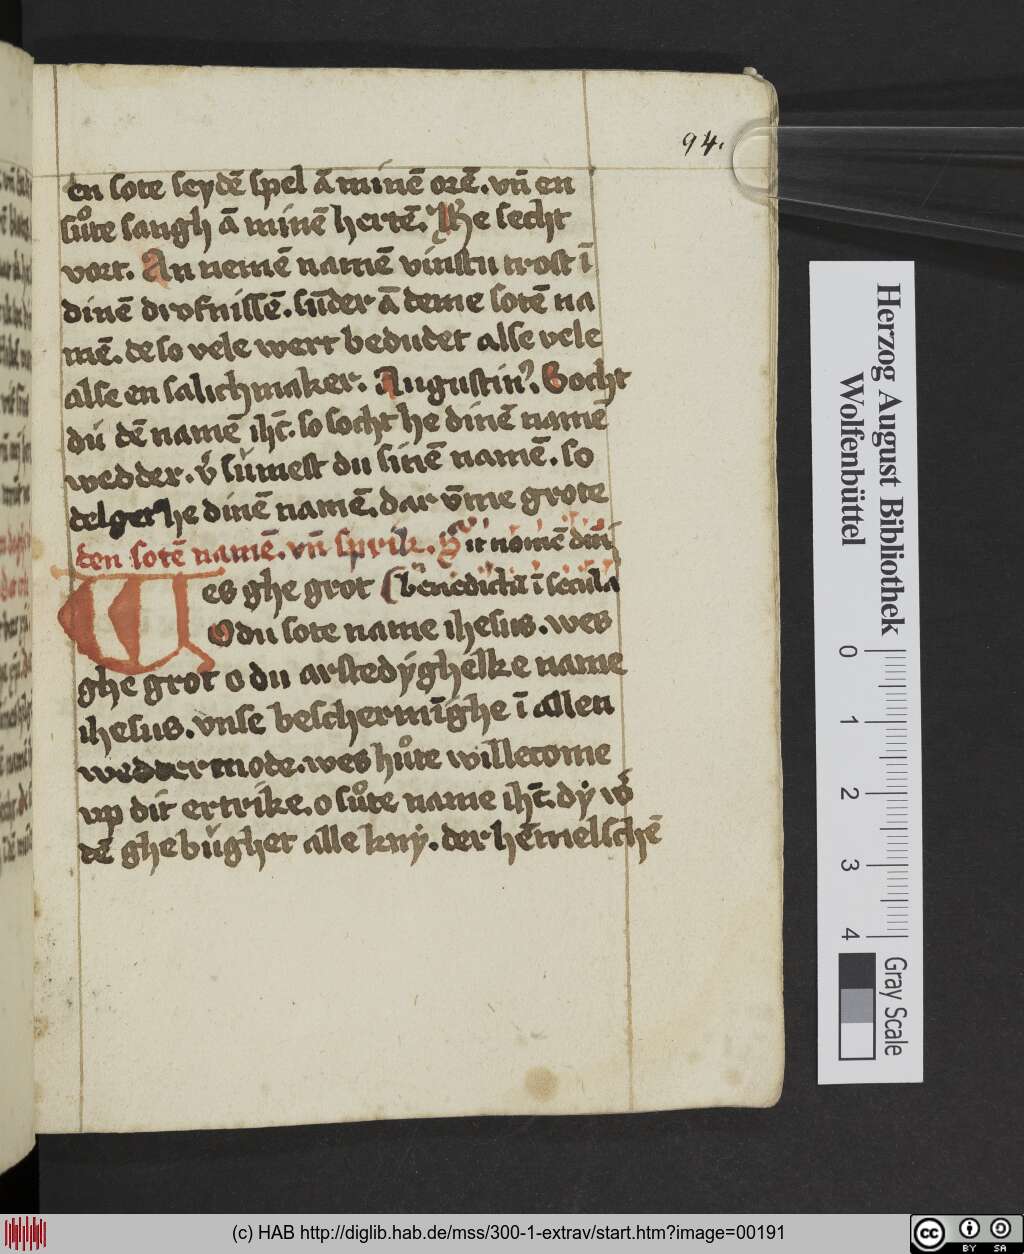 94.
en sote seydē spel ā minē orē. vn̄ en
sůte sangh ā minē hertē. He secht
vort. An nemē namē vinstu trost ī
dinē drofnissē. sūder ā deme sotē na
mē. de so vele wert bedudet alse vele
alse en salichmaker. Augustin9. Socht
du dē namē ihc̄. so socht he dinē namē
wedder. v̄ sumest du sinē namē. so
delget he dinē namē. dar v̄me grote
den sotē namē. vn̄ sprik. Sit nomē dn̄i
es ghe grot b̄enedictū ī secula
O du sote name ihesus. wes
ghe grot o du arstedyghelke name
ihesus. vnse beschermīghe ī allen
weddermode. wes hůte willecome
vp dit ertrike. o sůte name ihc̄. dy vō
dē ghebůghet alle kny. der hēmelschē
Herzog August Bibliothek
Wolfenbüttel
0 1 2 3 4
Gray Scale
(c) HAB http://diglib.hab.de/mss/300-1-extrav/start.htm?image=00191
cc BY SA